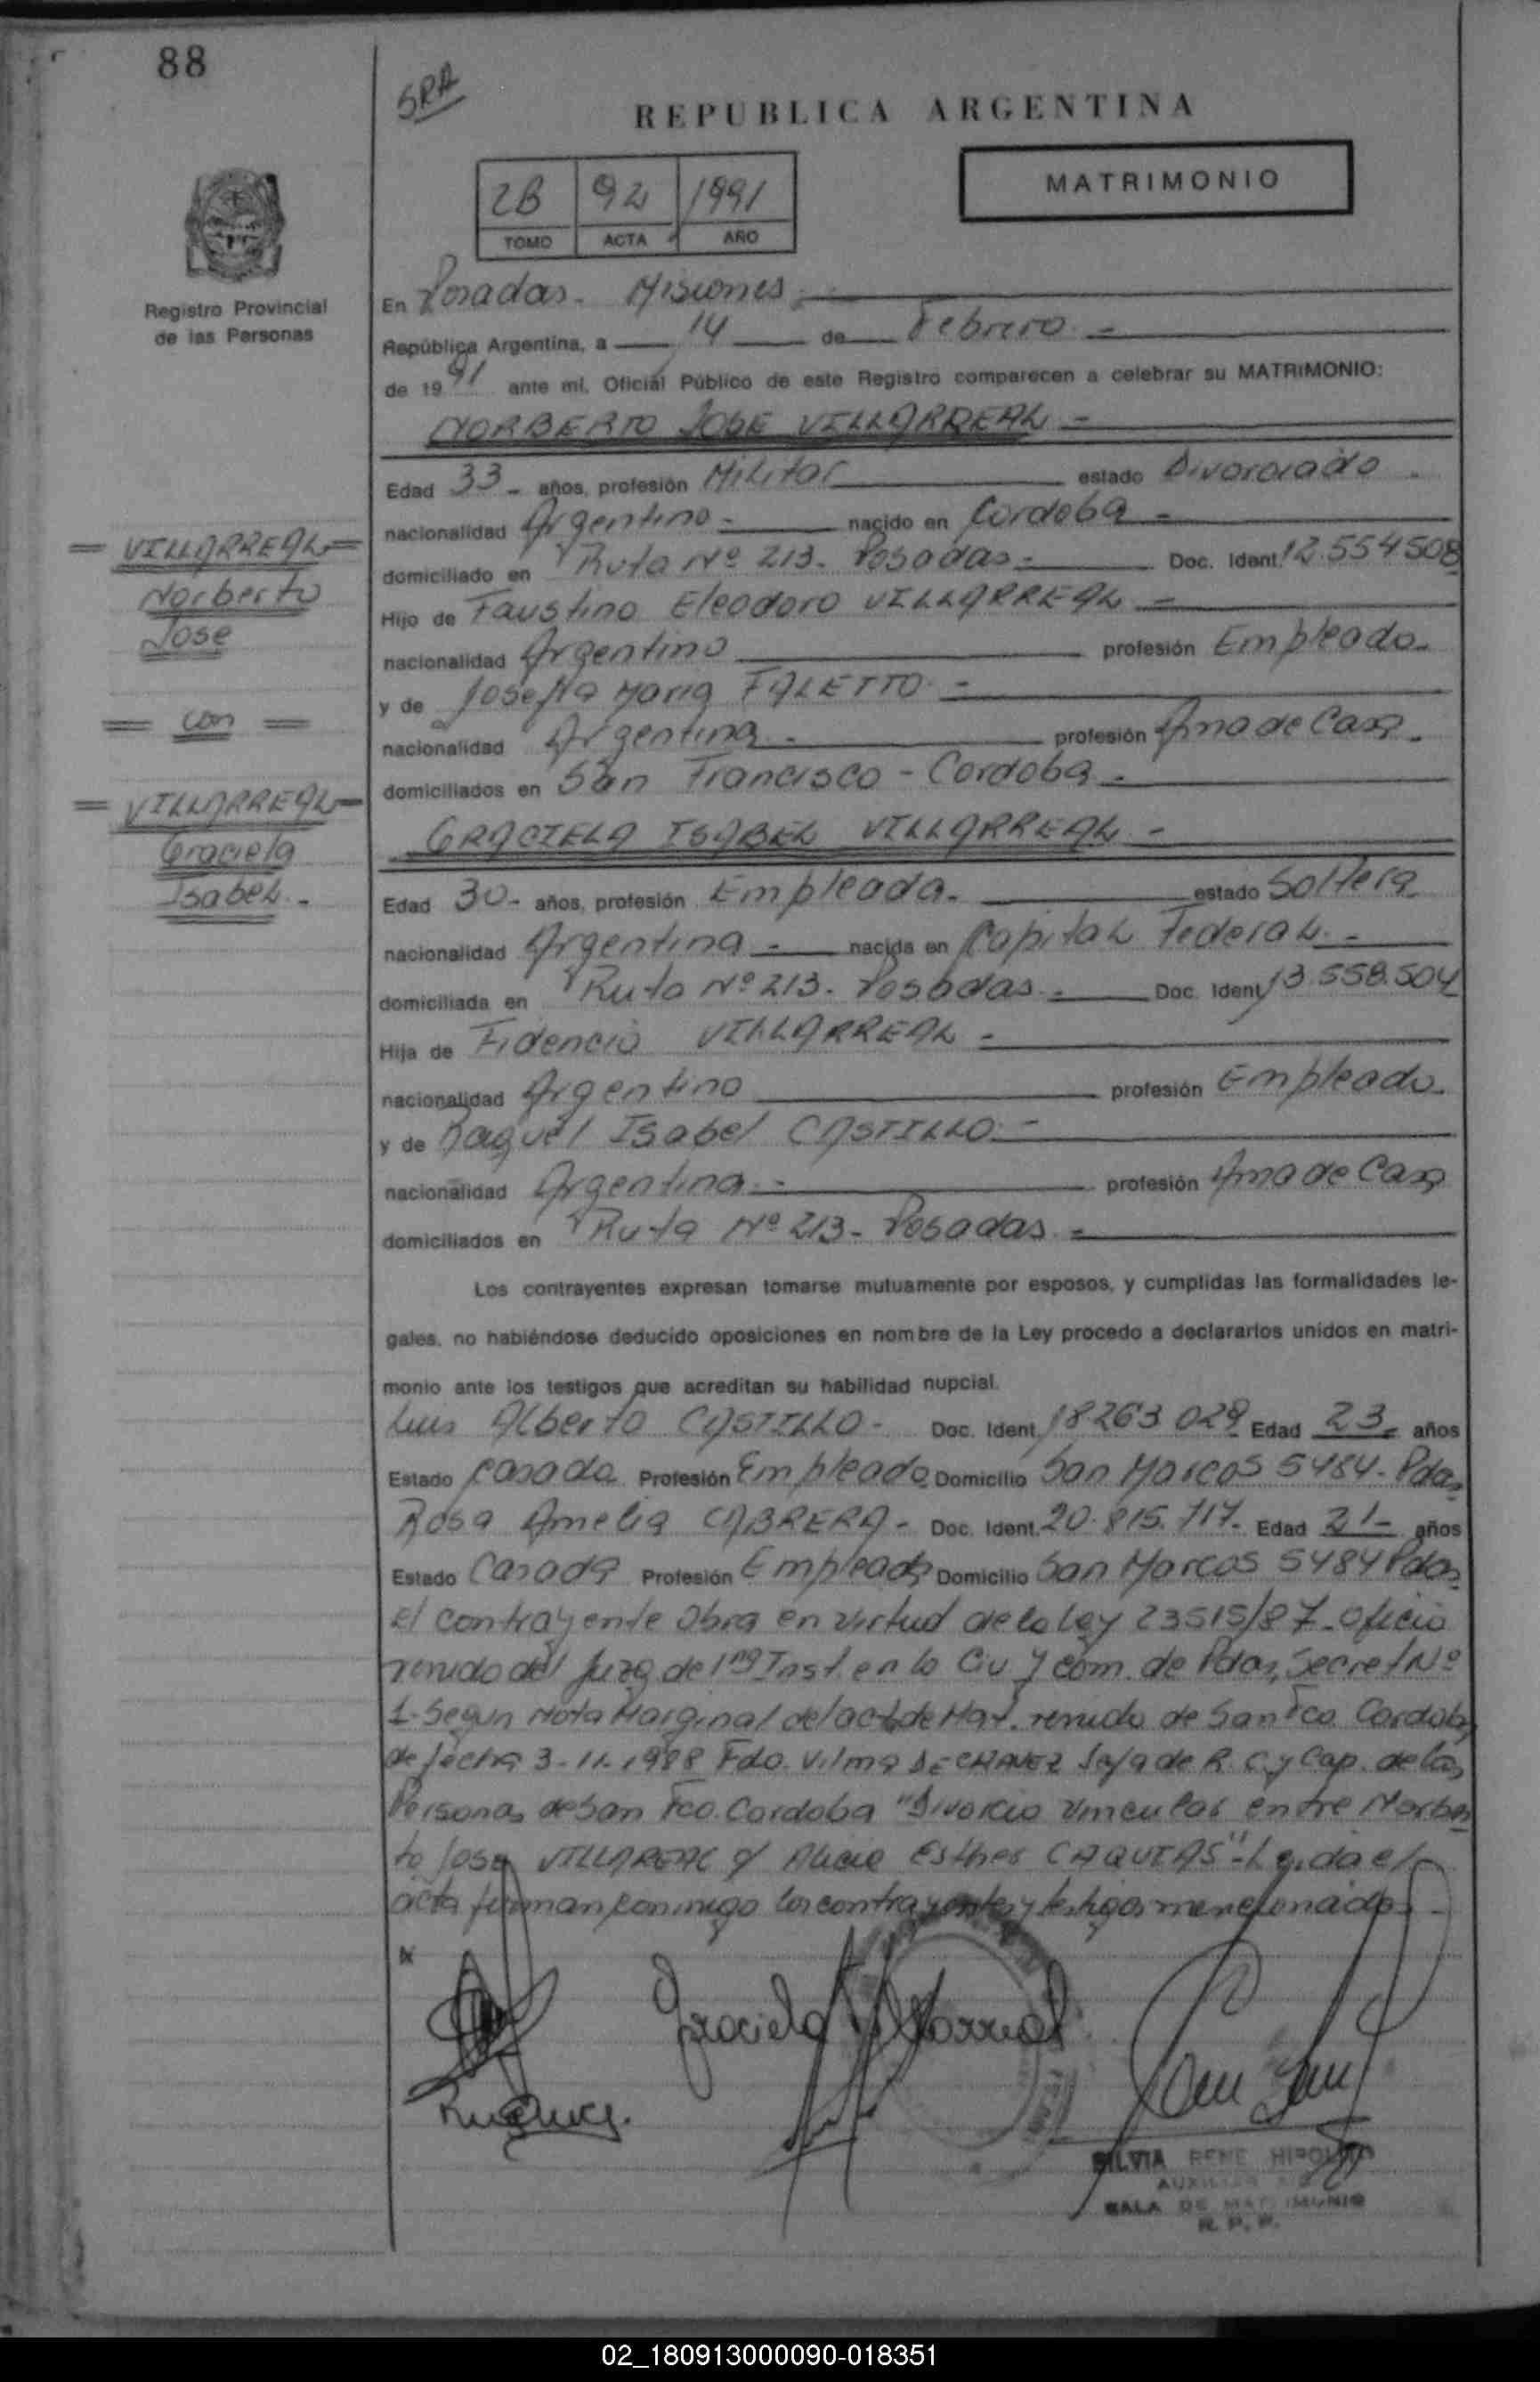 88
SRA
REPUBLICA ARGENTINA
MATRIMONIO
2B 92 1991
TOMO ACTA AÑO
Registro Provincial
de las Personas
En Posadas - Misiones
República Argentina, a 14 de Febrero -
de 1991 ante mí, Oficial Público de este Registro comparecen a celebrar su MATRIMONIO:
NORBERTO JOSE VILLARREAL -
Edad 33 - años, profesión Militar estado Divorciado -
nacionalidad Argentino - nacido en Cordoba -
domiciliado en Ruta Nº 213 - Posadas - Doc. Ident. 12.554.508
Hijo de Faustino Eleodoro VILLARREAL -
nacionalidad Argentino profesión Empleado -
y de Josefa Maria FALETTO -
nacionalidad Argentina - profesión Ama de Casa -
domiciliados en San Francisco - Cordoba -
= VILLARREAL =
Norberto
Jose
= con =
= VILLARREAL =
Graciela
Isabel -
GRACIELA ISABEL VILLARREAL -
Edad 30 - años, profesión Empleada - estado Soltera
nacionalidad Argentina - nacida en Capital Federal -
domiciliada en Ruta Nº 213 - Posadas - Doc. Ident. 13.558.504
Hija de Fidencio VILLARREAL -
nacionalidad Argentino profesión Empleado -
y de Raquel Isabel CASTILLO -
nacionalidad Argentina - profesión Ama de Casa
domiciliados en Ruta Nº 213 - Posadas -
Los contrayentes expresan tomarse mutuamente por esposos, y cumplidas las formalidades le-
gales, no habiéndose deducido oposiciones en nombre de la Ley procedo a declararlos unidos en matri-
monio ante los testigos que acreditan su habilidad nupcial.
Luis Alberto CASTILLO - Doc. Ident. 18263029 Edad 23 - años
Estado Casado Profesión Empleado Domicilio San Marcos 5484 - Pdas
Rosa Amelia CABRERA - Doc. Ident. 20.815.717 - Edad 21 - años
Estado Casada Profesión Empleada Domicilio San Marcos 5484 Pdas
El contrayente Obra en virtud de la Ley 23515/87 - Oficio
venido del Juzg. de 1ra Inst. en lo Civ y Com. de Pdas, Secret Nº
1 - Segun Nota Marginal del act de Mat. venido de San Fco Cordoba
de fecha 3-11-1988 Fdo. Vilma DE CHAVEZ Jefa de R. C. y Cap. de las
Personas de San Fco. Cordoba "Divorcio Vincular entre Norber
to Jose VILLAREAL y Alicia Esther CAQUIAS" - Leida el
acta firman conmigo los contrayentes y testigos mencionados -
Graciela Villarreal
SILVIA RENE HIPOLITO
SALA DE MATRIMONIO
R. P. P.
02_180913000090-018351